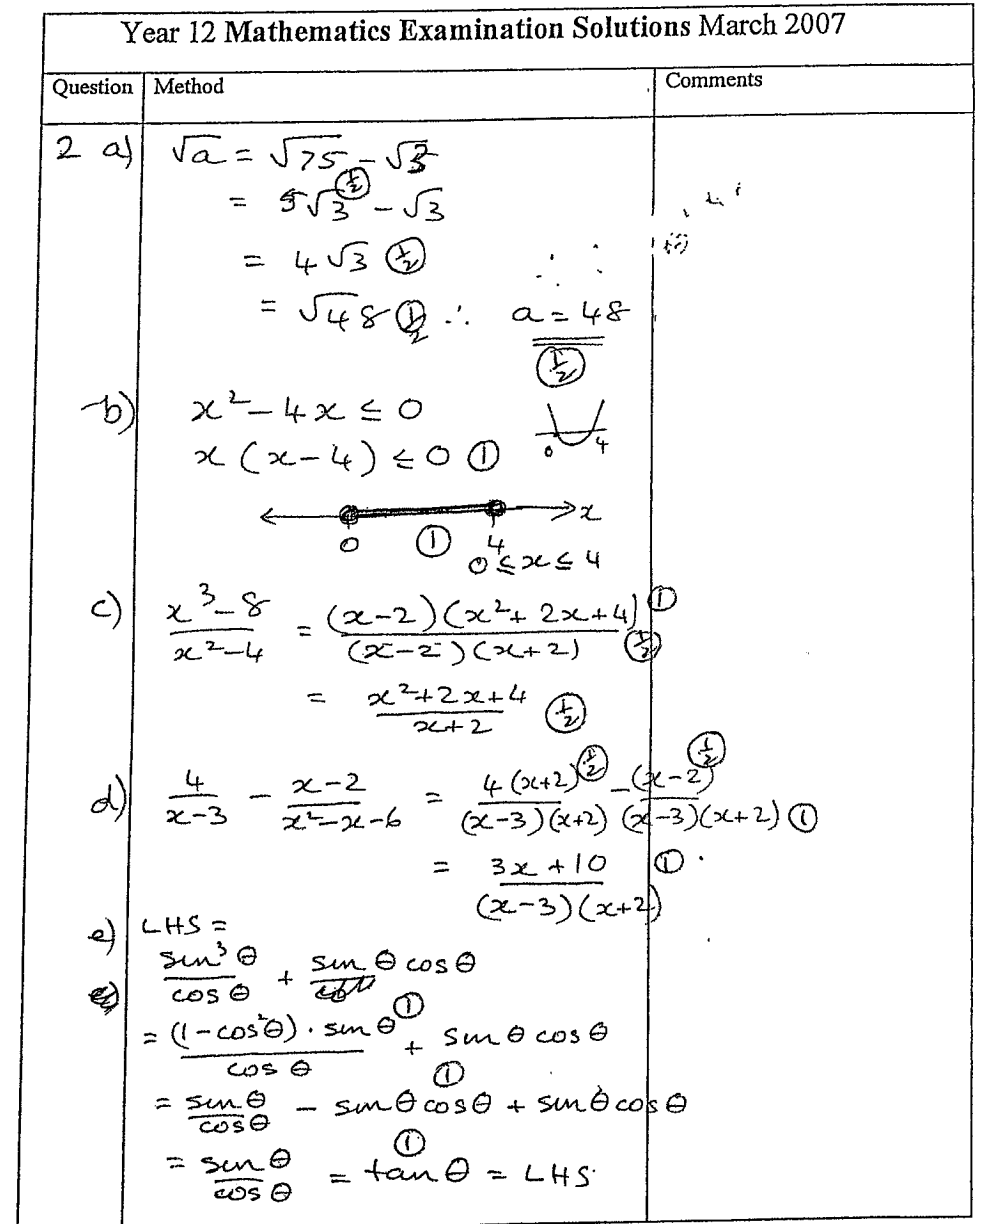 Year 12 Mathematics Examination Solutions March 2007
Question Method Comments
2 a) √a = √75 - √3
= 5√3 (½) - √3
= 4√3 (½)
= √48 (½) ∴ a = 48
(½)
b) x² - 4x ≤ 0
x (x - 4) ≤ 0 (1) 0 4
x
0 (1) 4
0 ≤ x ≤ 4
c) (x³ - 8)/(x² - 4) = (x-2)(x² + 2x + 4) (1) / (x-2)(x+2) (½)
= (x² + 2x + 4)/(x + 2) (½)
d) 4/(x-3) - (x-2)/(x²-x-6) = 4(x+2) (½) / (x-3)(x+2) - (x-2) (½) / (x-3)(x+2) (1)
= (3x + 10)/((x-3)(x+2)) (1)
e) LHS =
sin³θ/cosθ + sinθ cosθ
= (1 - cos²θ) . sinθ (1) / cosθ + sinθ cosθ
= sinθ/cosθ - sinθ cosθ (1) + sinθ cosθ
= sinθ/cosθ = tanθ (1) = LHS.